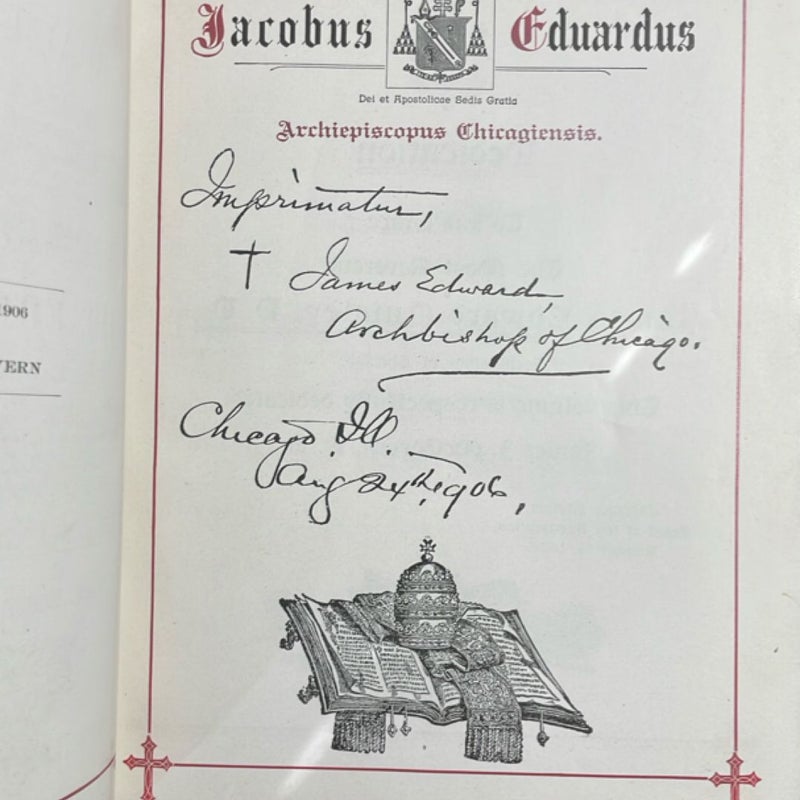 Jacobus Eduardus
Dei et Apostolicae Sedis Gratia
Archiepiscopus Chicagiensis.
Imprimatur,
† James Edward,
Archbishop of Chicago.
Chicago, Ill.
Aug 24th, 1906,
1906
VERN